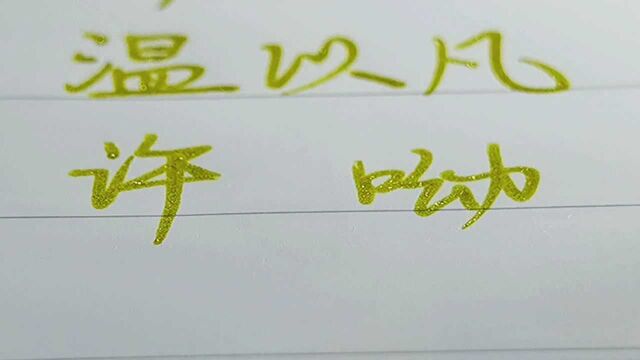 温以凡
许 呦